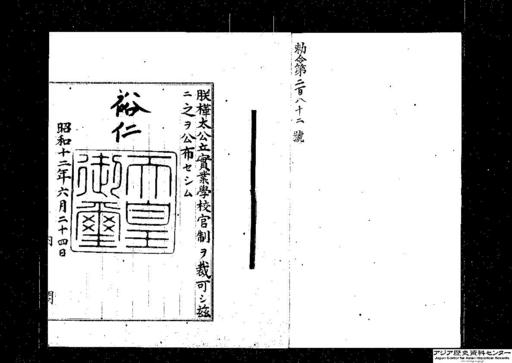 勅令第二百八十二號
朕樺太公立實業學校官制ヲ裁可シ茲
ニ之ヲ公布セシム
裕仁
天皇御璽
昭和十二年六月二十四日
アジア歴史資料センター
Japan Center for Asian Historical Records